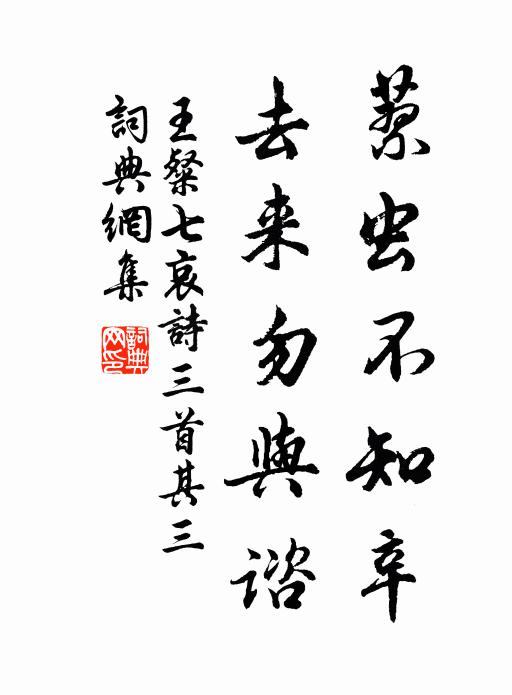 蓼虫不知辛
去来勿與諮
王粲七哀詩三首其三
詞典網集
詞典網印